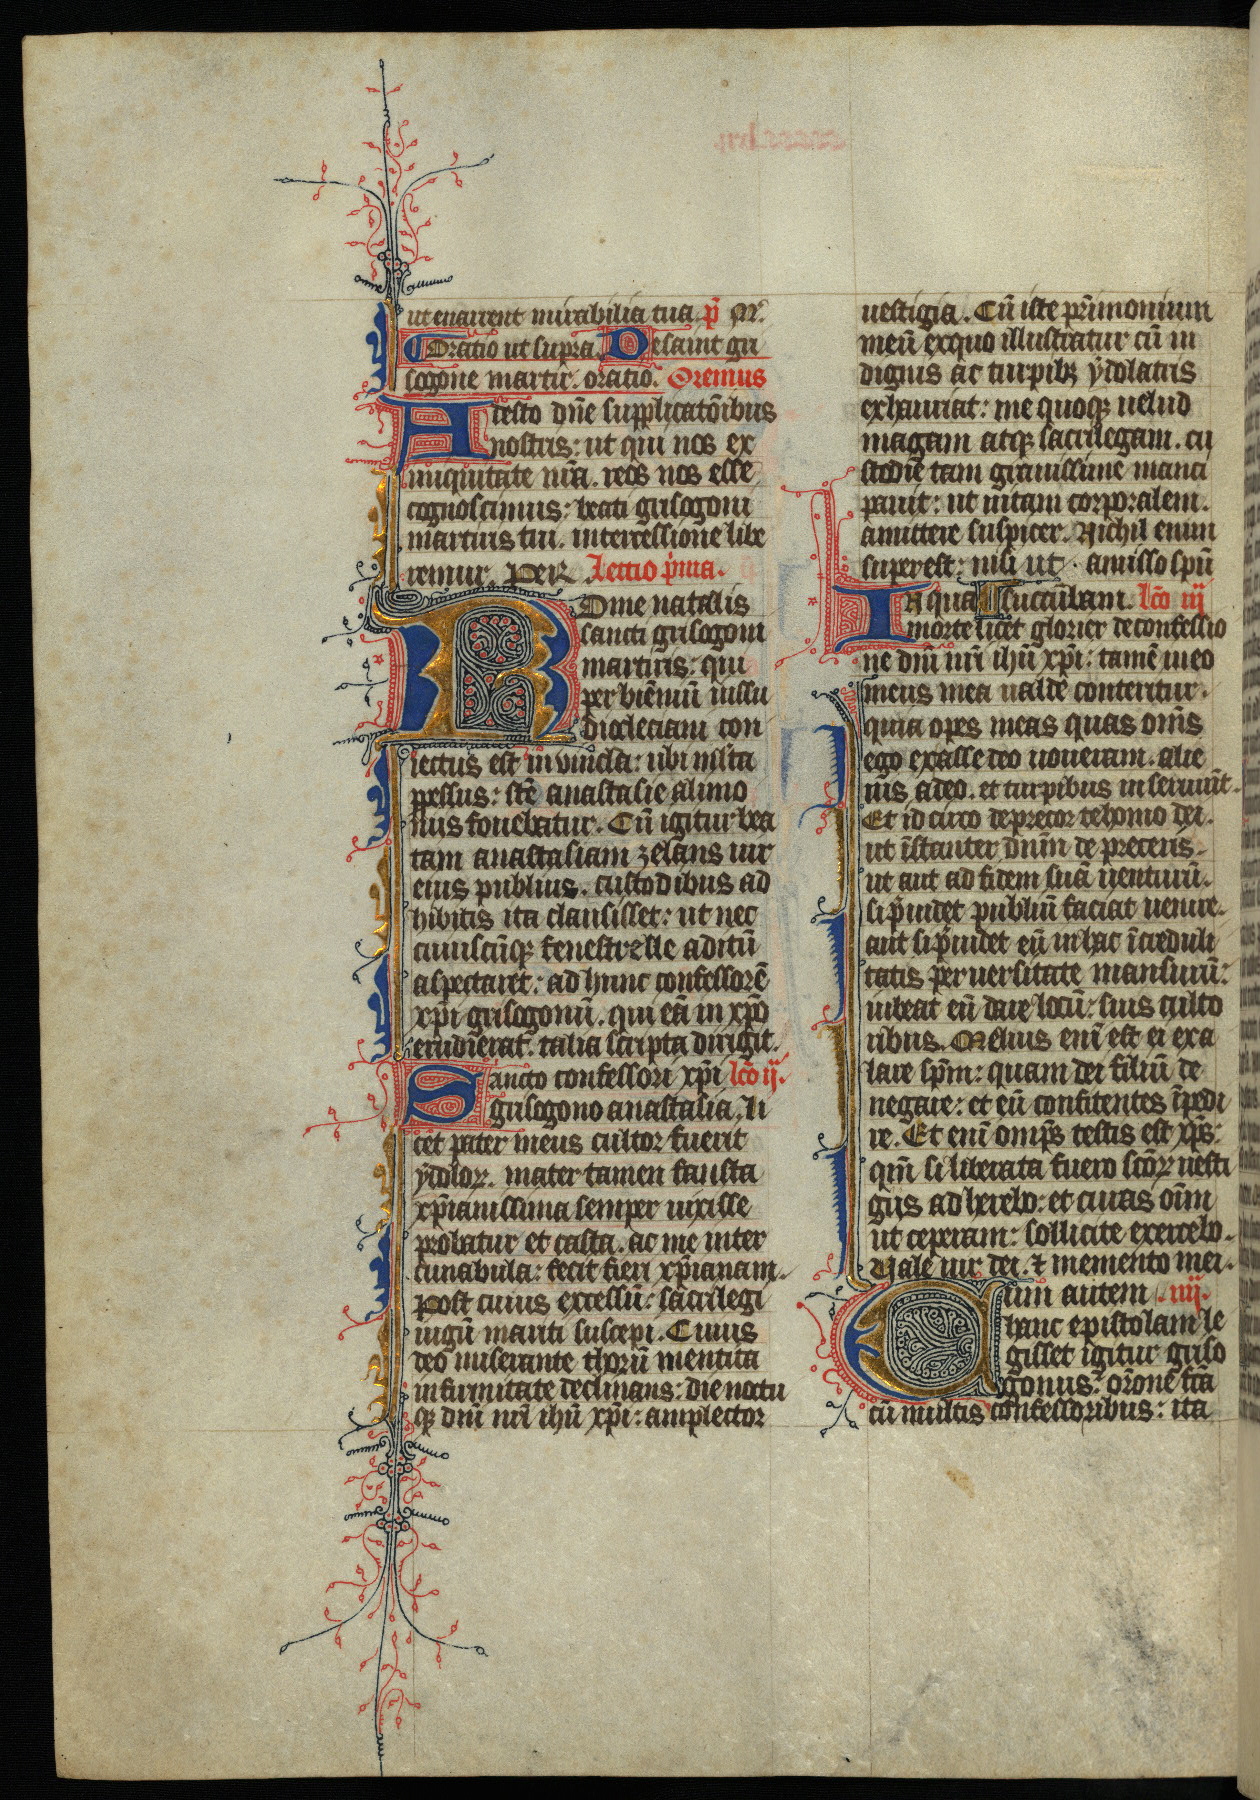 ut enarrent mirabilia tua. p̄ Nr̄.
Oratio ut supra. De saint gri
sogone martir. oratio. Oremus
Adesto dn̄e supplicatōibus
nostris: ut qui nos ex
iniquitate nr̄a. reos nos esse
cognoscimus: beati grisogoni
martiris tui. intercessione libe
remur. Per. Lectio p̄ma.
Rome natalis
sancti grisogoni
martiris: qui
per biēniū iussu
diocleciani con
iectus est in vincla: ubi ml̄ta
pessus: sc̄e anastasie alimo
niis fouebatur. Cū igitur bea
tam anastasiam zelans uir
eius publius. custodibus ad
hibitis ita clausisset: ut nec
cuiuscūqꝫ fenestrelle aditū
aspectaret: ad hunc confessorē
xp̄i grisogonū. qui eā in xp̄o
erudierat. talia scripta dirigit.
Sancto confessori xp̄i lc̄o ij.
grisogono anastasia. li
cet pater meus cultor fuerit
ydolorꝫ. mater tamen fausta
xp̄ianissima semper uixisse
probatur et casta. ac me inter
cunabula: fecit fieri xp̄ianam.
Post cuius excessū: sacrilegi
iugū mariti suscepi. Cuius
deo miserante thorū mentita
infirmitate declinans: die noctu
qꝫ dn̄i nr̄i ih̄u xp̄i: amplector
uestigia. Cū iste pr̄imonium
meū ex quo illustratur cū in
dignis ac turpibꝫ ydolatris
exhauriat: me quoqꝫ uelud
magam atqꝫ sacrilegam. cu
stodie tam grauissime manci
pauit: ut uitam corporalem.
amittere suspicer. Nichil enim
superest: nisi ut amisso sp̄u
morti succūbam. lc̄o iij
In qua
morte licet glorier de confessio
ne dn̄i nr̄i ih̄u xp̄i: tamē in eo
meus mea ualde conteritur.
quia opes meas quas om̄s
ego exasse deo uoueram. alie
nis a deo. et turpibus inseruiūt.
Et id circo deprecor te homo dei.
ut īstanter dn̄m de preceris.
ut aut ad fidem suā uenturū.
si p̄uidet publiū faciat uenire.
aut si p̄uidet eū in hac īcreduli
tatis peruersitate mansurū:
iubeat eū dare locū: suis culto
ribus. Melius enī est ei exa
lare sp̄m: quam dei filiū de
negare: et eū confitentes īpedi
re. Et enī omp̄s testis est xp̄s:
qm̄ si liberata fuero sc̄orꝫ uesti
giis ad herebo: et curas om̄m
ut ceperam: sollicite exercebo.
Uale uir dei. ⁊ memento mei.
Cum autem .iiij.
hanc epistolam le
gisset igitur griso
gonus: or̄one fc̄a
cū multis confessoribus: ita